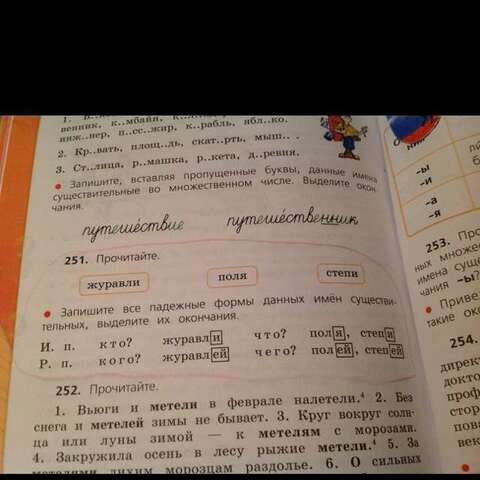 венник, к..мбайн,
инж..нер, п..сс..жир, к..рабль, ябл..ко.
2. Кр..вать, площ..дь, скат..рть, мыш.. .
3. Ст..лица, р..машка, р..кета, д..ревня.
• Запишите, вставляя пропущенные буквы, данные имена
существительные во множественном числе. Выделите окон-
чания.
путешéствие путешéственник
251. Прочитайте.
журавли поля степи
• Запишите все падежные формы данных имён существи-
тельных, выделите их окончания.
И. п. кто? журавли что? поля, степи
Р. п. кого? журавлей чего? полей, степей
252. Прочитайте.
1. Вьюги и метели в феврале налетели.⁴ 2. Без
снега и метелей зимы не бывает. 3. Круг вокруг солн-
ца или луны зимой — к метелям с морозами.
4. Закружила осень в лесу рыжие метели.⁴ 5. За
метелями лихим морозцам раздолье. 6. О сильных
-ы
-и
-а
-я
253. Про
ных множе
имена сущ
чания -ы?
• Приве
такие око
254.
директ
докто
проф
стор
пова
век